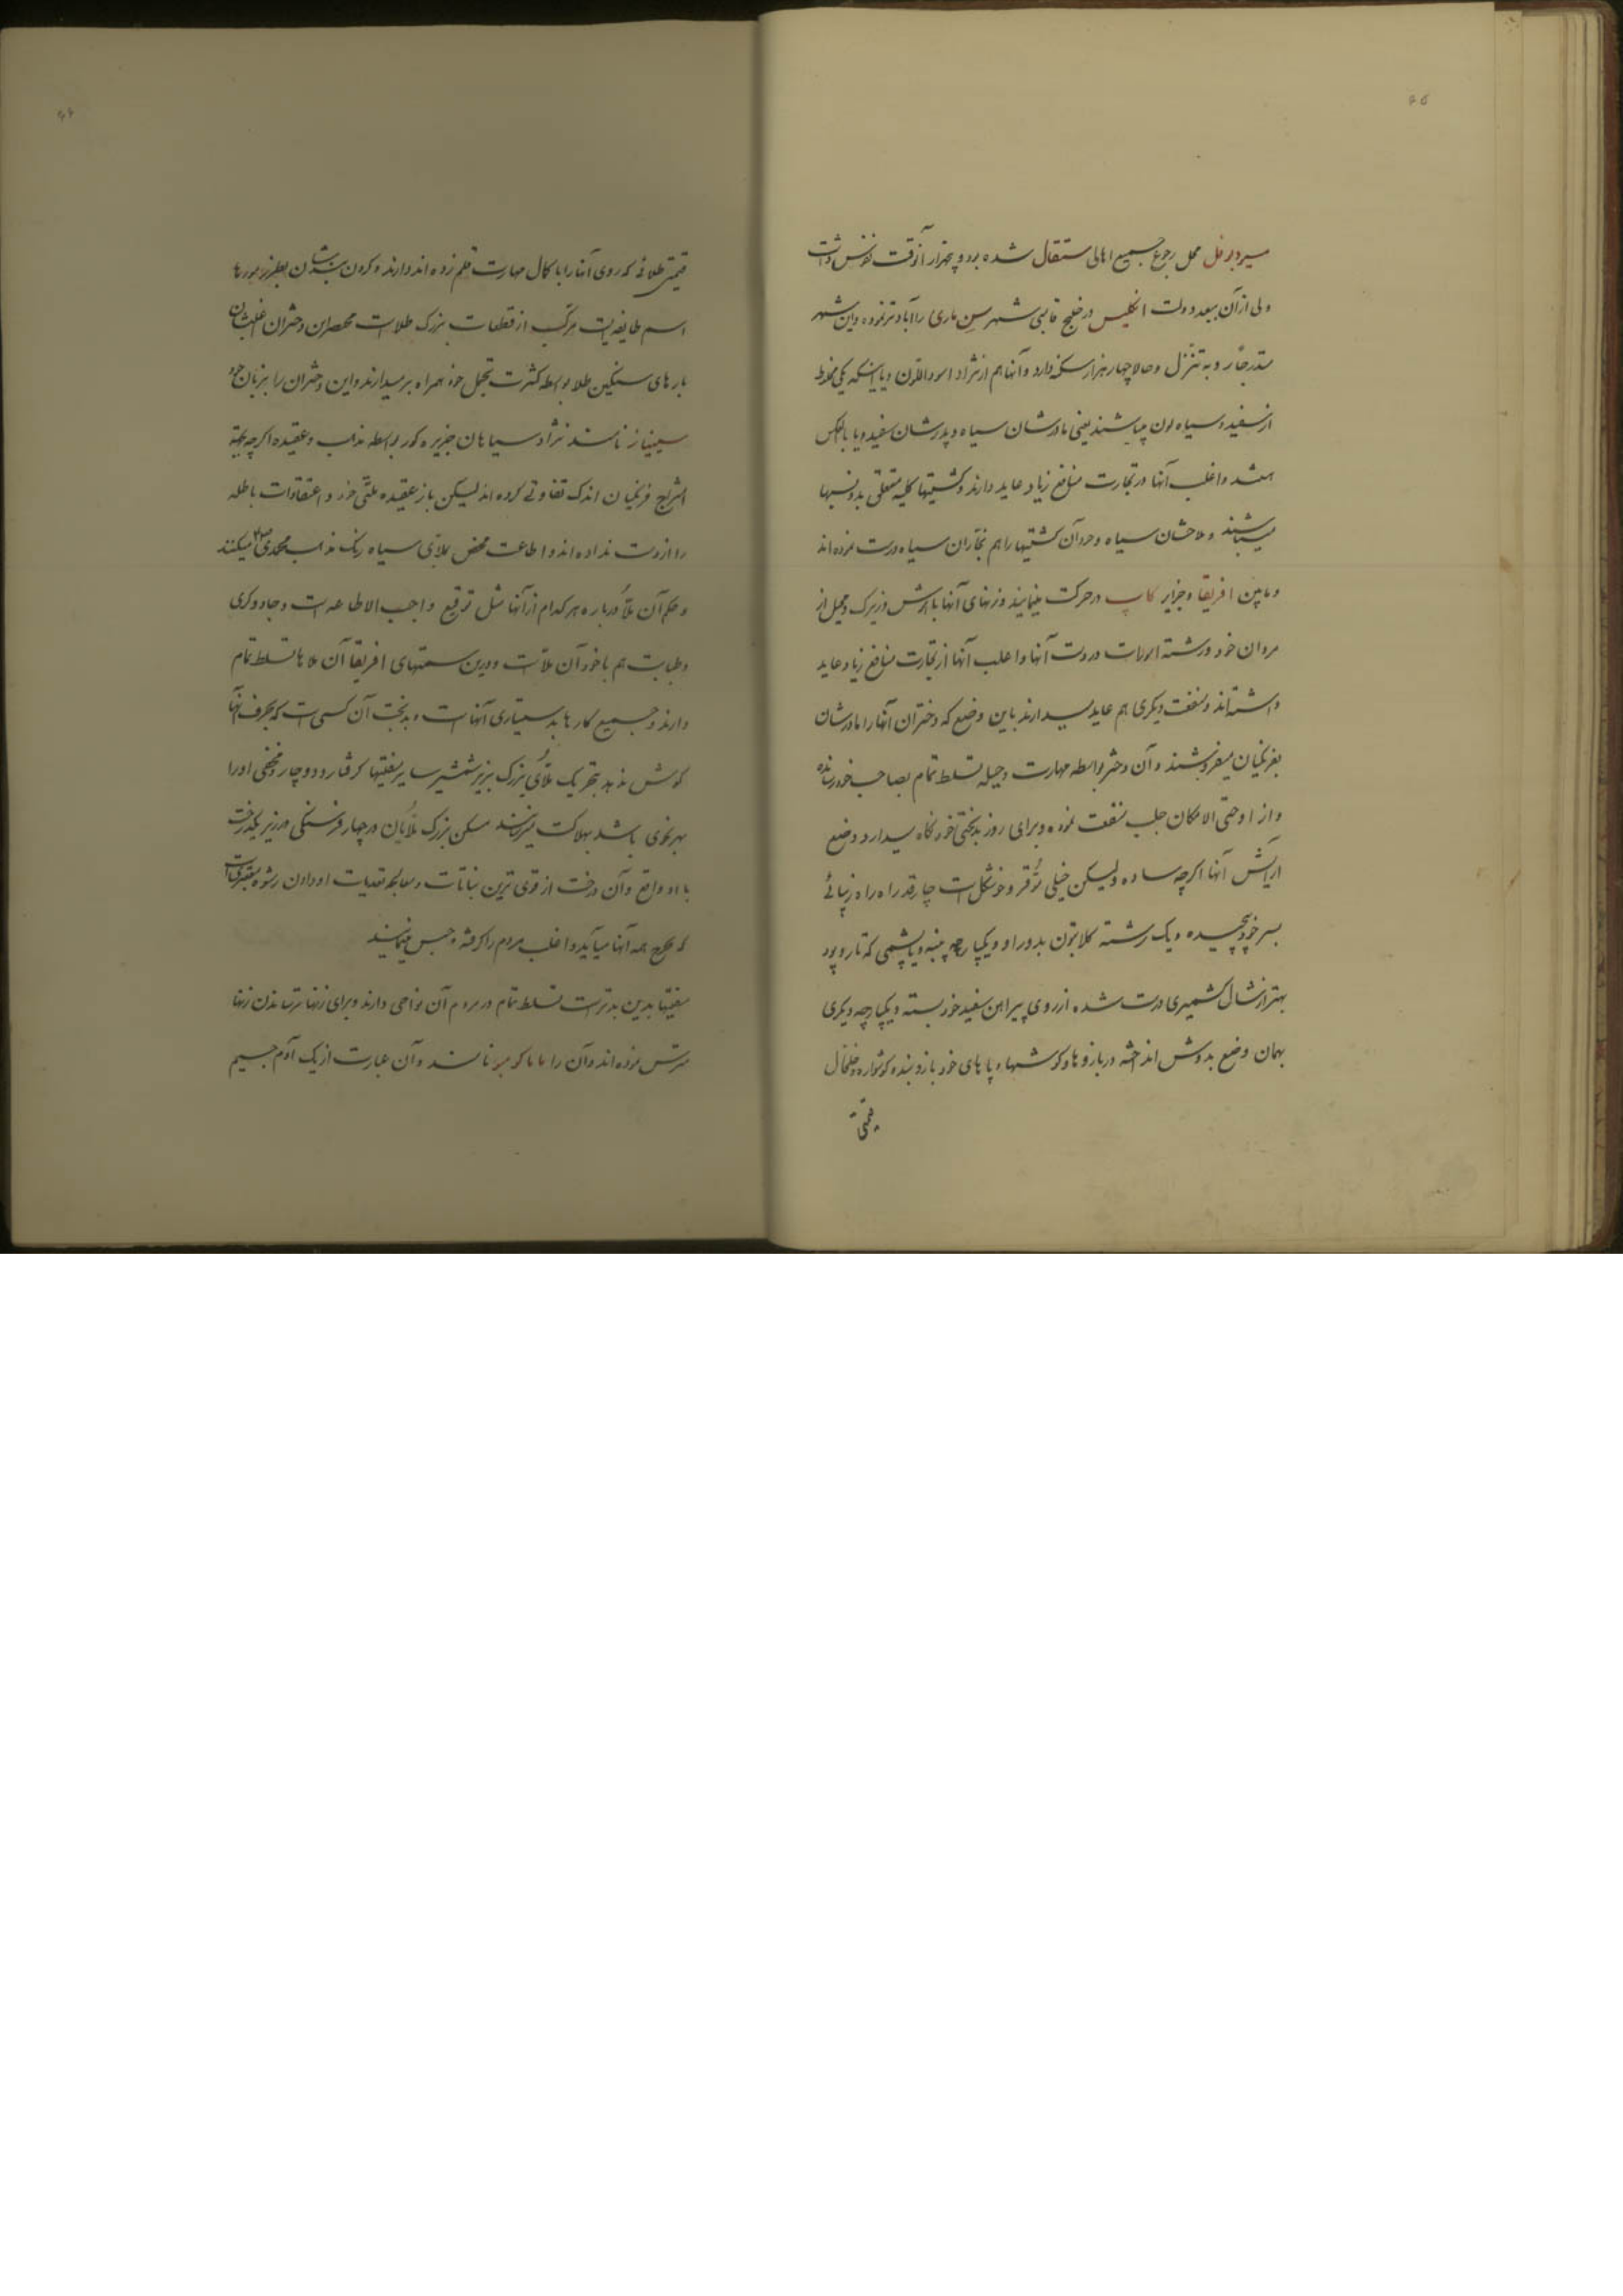 ۶۵
محل رجوع جمیع اهالی ستقال شده بود و پنجهزار آنوقت نفوس داشت
ولی از آن ببعد دولت انگلیس در خلیج قابی شهر سن ماری را آبادتر نموده و این شهر
متدرجاً رو به تنزل و حالا چهار هزار سکنه دارد و آنها هم از نژاد اسود اللون و یا اینکه یکی مخلوط
از سفید و سیاه لون میباشند یعنی مادرشان سیاه و پدرشان سفید و یا بالعکس
هستند و اغلب آنها در تجارت منافع زیاد عاید دارند و کشتیها کلیه متعلق بدونسبها
میباشند و ملاحشان سیاه و خود آن کشتیها را هم نجاران سیاه درست نموده اند
و مابین افریقا و جزایر کاپ در حرکت مینمایند و زنهای آنها باهوش و زیرک و محیل از
مردان خود و رشته امورات در دست آنها و اغلب آنها از تجارت منافع زیاد عاید
داشته‌اند و منفعت دیگری هم عاید میدارند باین وضع که دختران آنها را مادرشان
بفرنگیان میفروشند و آن دختر بواسطه مهارت و حیله تسلط تمام بصاحب خود رسانده
و از او حتی الامکان جلب منفعت نموده و برای روز بدبختی خود نگاه میدارد و وضع
آرایش آنها اگرچه ساده ولیکن خیلی موقر و خوشگل است چارقد راه راه زیبائی
بسر خود پیچیده و یک رشته گلابتون بدور او و یکپارچه پنبه و یا پشمی که تار و پود
بهتر از شال کشمیری درست شده از روی پیراهن سفید خود بسته و یکپارچه دیگری
بهمان وضع بدوش انداخته در بازوها و گوشها و پاهای خود بازوبند و گوشواره و خلخال
قیمتی
۶۶
قیمتی طلائی که روی آنها را با کمال مهارت قلم زده اند دارند و گردن بندشان بطرز
اسم طایفه ایست مرکب از قطعات بزرگ طلاست مختصر این دختران اغلبشان
بارهای سنگین طلا بواسطه کثرت تجمل خود همراه برمیدارند و این دختران را بزبان خود
سینیار نامند نژاد سیاهان جزیره کور بواسطه مذهب و عقیده اگرچه بجهة
امتزاج فرنگیان اندک تفاوتی کرده اند لیکن باز عقیده ملتی خود و اعتقادات باطله
را از دست نداده اند و اطاعت محض بملای سیاه رنگ مذهب محمدی میکنند
و حکم آن ملا درباره هر کدام از آنها مثل توقیع واجب الاطاعه است و جادوگری
و طبابت هم با خود آن ملاست و در این سمتهای افریقا آن ملاها تسلط تمام
دارند و جمیع کارها بدستیاری آنهاست و بدبخت آن کسی است که بحرف آنها
گوش ندهد بتحریک ملای بزرگ بزیر شمشیر سایر مفتیها گرفتار و دوچار و مخفی او را
بهر نحوی باشد بهلاکت میرسانند مسکن بزرگ ملایان در چهار فرسنگی در زیر یکدرخت
بااو واقع و آن درخت از قوی ترین نباتات و معالجه تعدیات او دادن رشوه مقرریست
که بخرج همه آنها میآید و اغلب مردم را گرفته و حبس مینمایند
مفتیها بدین بدتر است تسلط تمام در مردم آن نواحی دارند و برای زنها ترساندن زنها
مترس نموده اند و آن را ماماکومبو نامند و آن عبارت از یک آدم جسیم